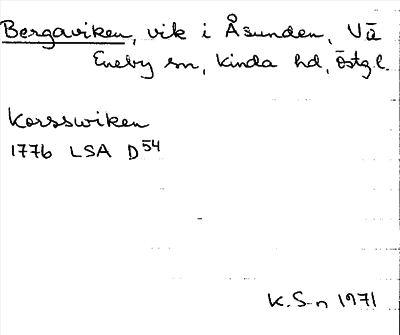 Bergaviken, vik i Åsunden, Vä
Eneby sn, Kinda hd, Östg.l.
Korsswiken
1776 LSA D54
K. S-n 1971